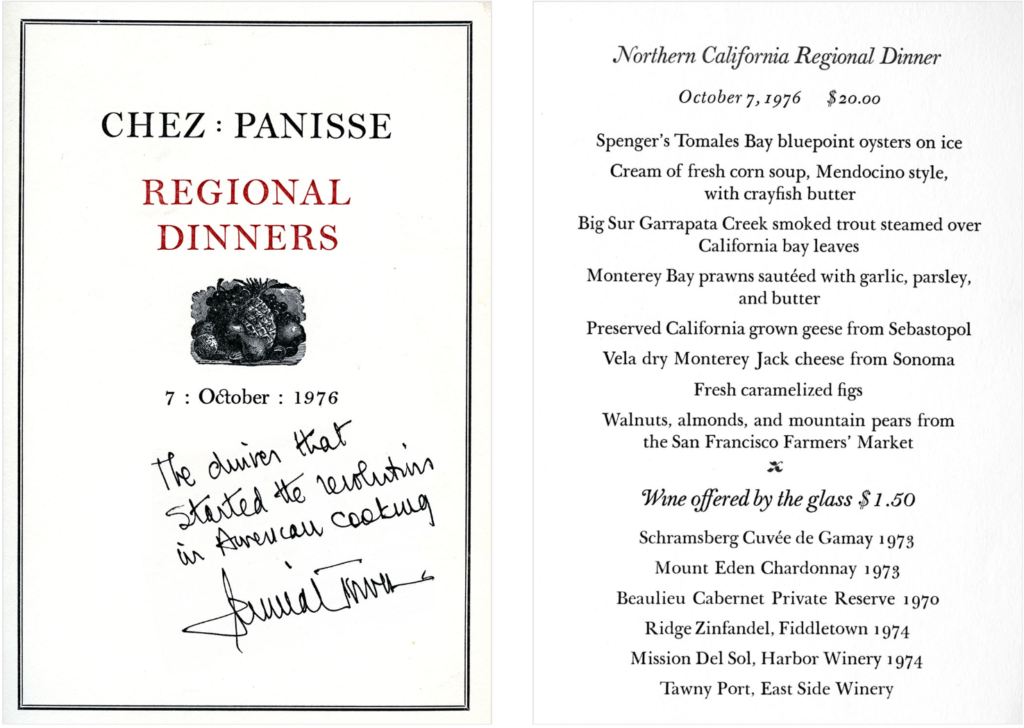 CHEZ : PANISSE
REGIONAL
DINNERS
7 : October : 1976
The dinner that
started the revolution
in American cooking
Jeremiah Tower
Northern California Regional Dinner
October 7, 1976 $20.00
Spenger's Tomales Bay bluepoint oysters on ice
Cream of fresh corn soup, Mendocino style,
with crayfish butter
Big Sur Garrapata Creek smoked trout steamed over
California bay leaves
Monterey Bay prawns sautéed with garlic, parsley,
and butter
Preserved California grown geese from Sebastopol
Vela dry Monterey Jack cheese from Sonoma
Fresh caramelized figs
Walnuts, almonds, and mountain pears from
the San Francisco Farmers' Market
Wine offered by the glass $1.50
Schramsberg Cuvée de Gamay 1973
Mount Eden Chardonnay 1973
Beaulieu Cabernet Private Reserve 1970
Ridge Zinfandel, Fiddletown 1974
Mission Del Sol, Harbor Winery 1974
Tawny Port, East Side Winery